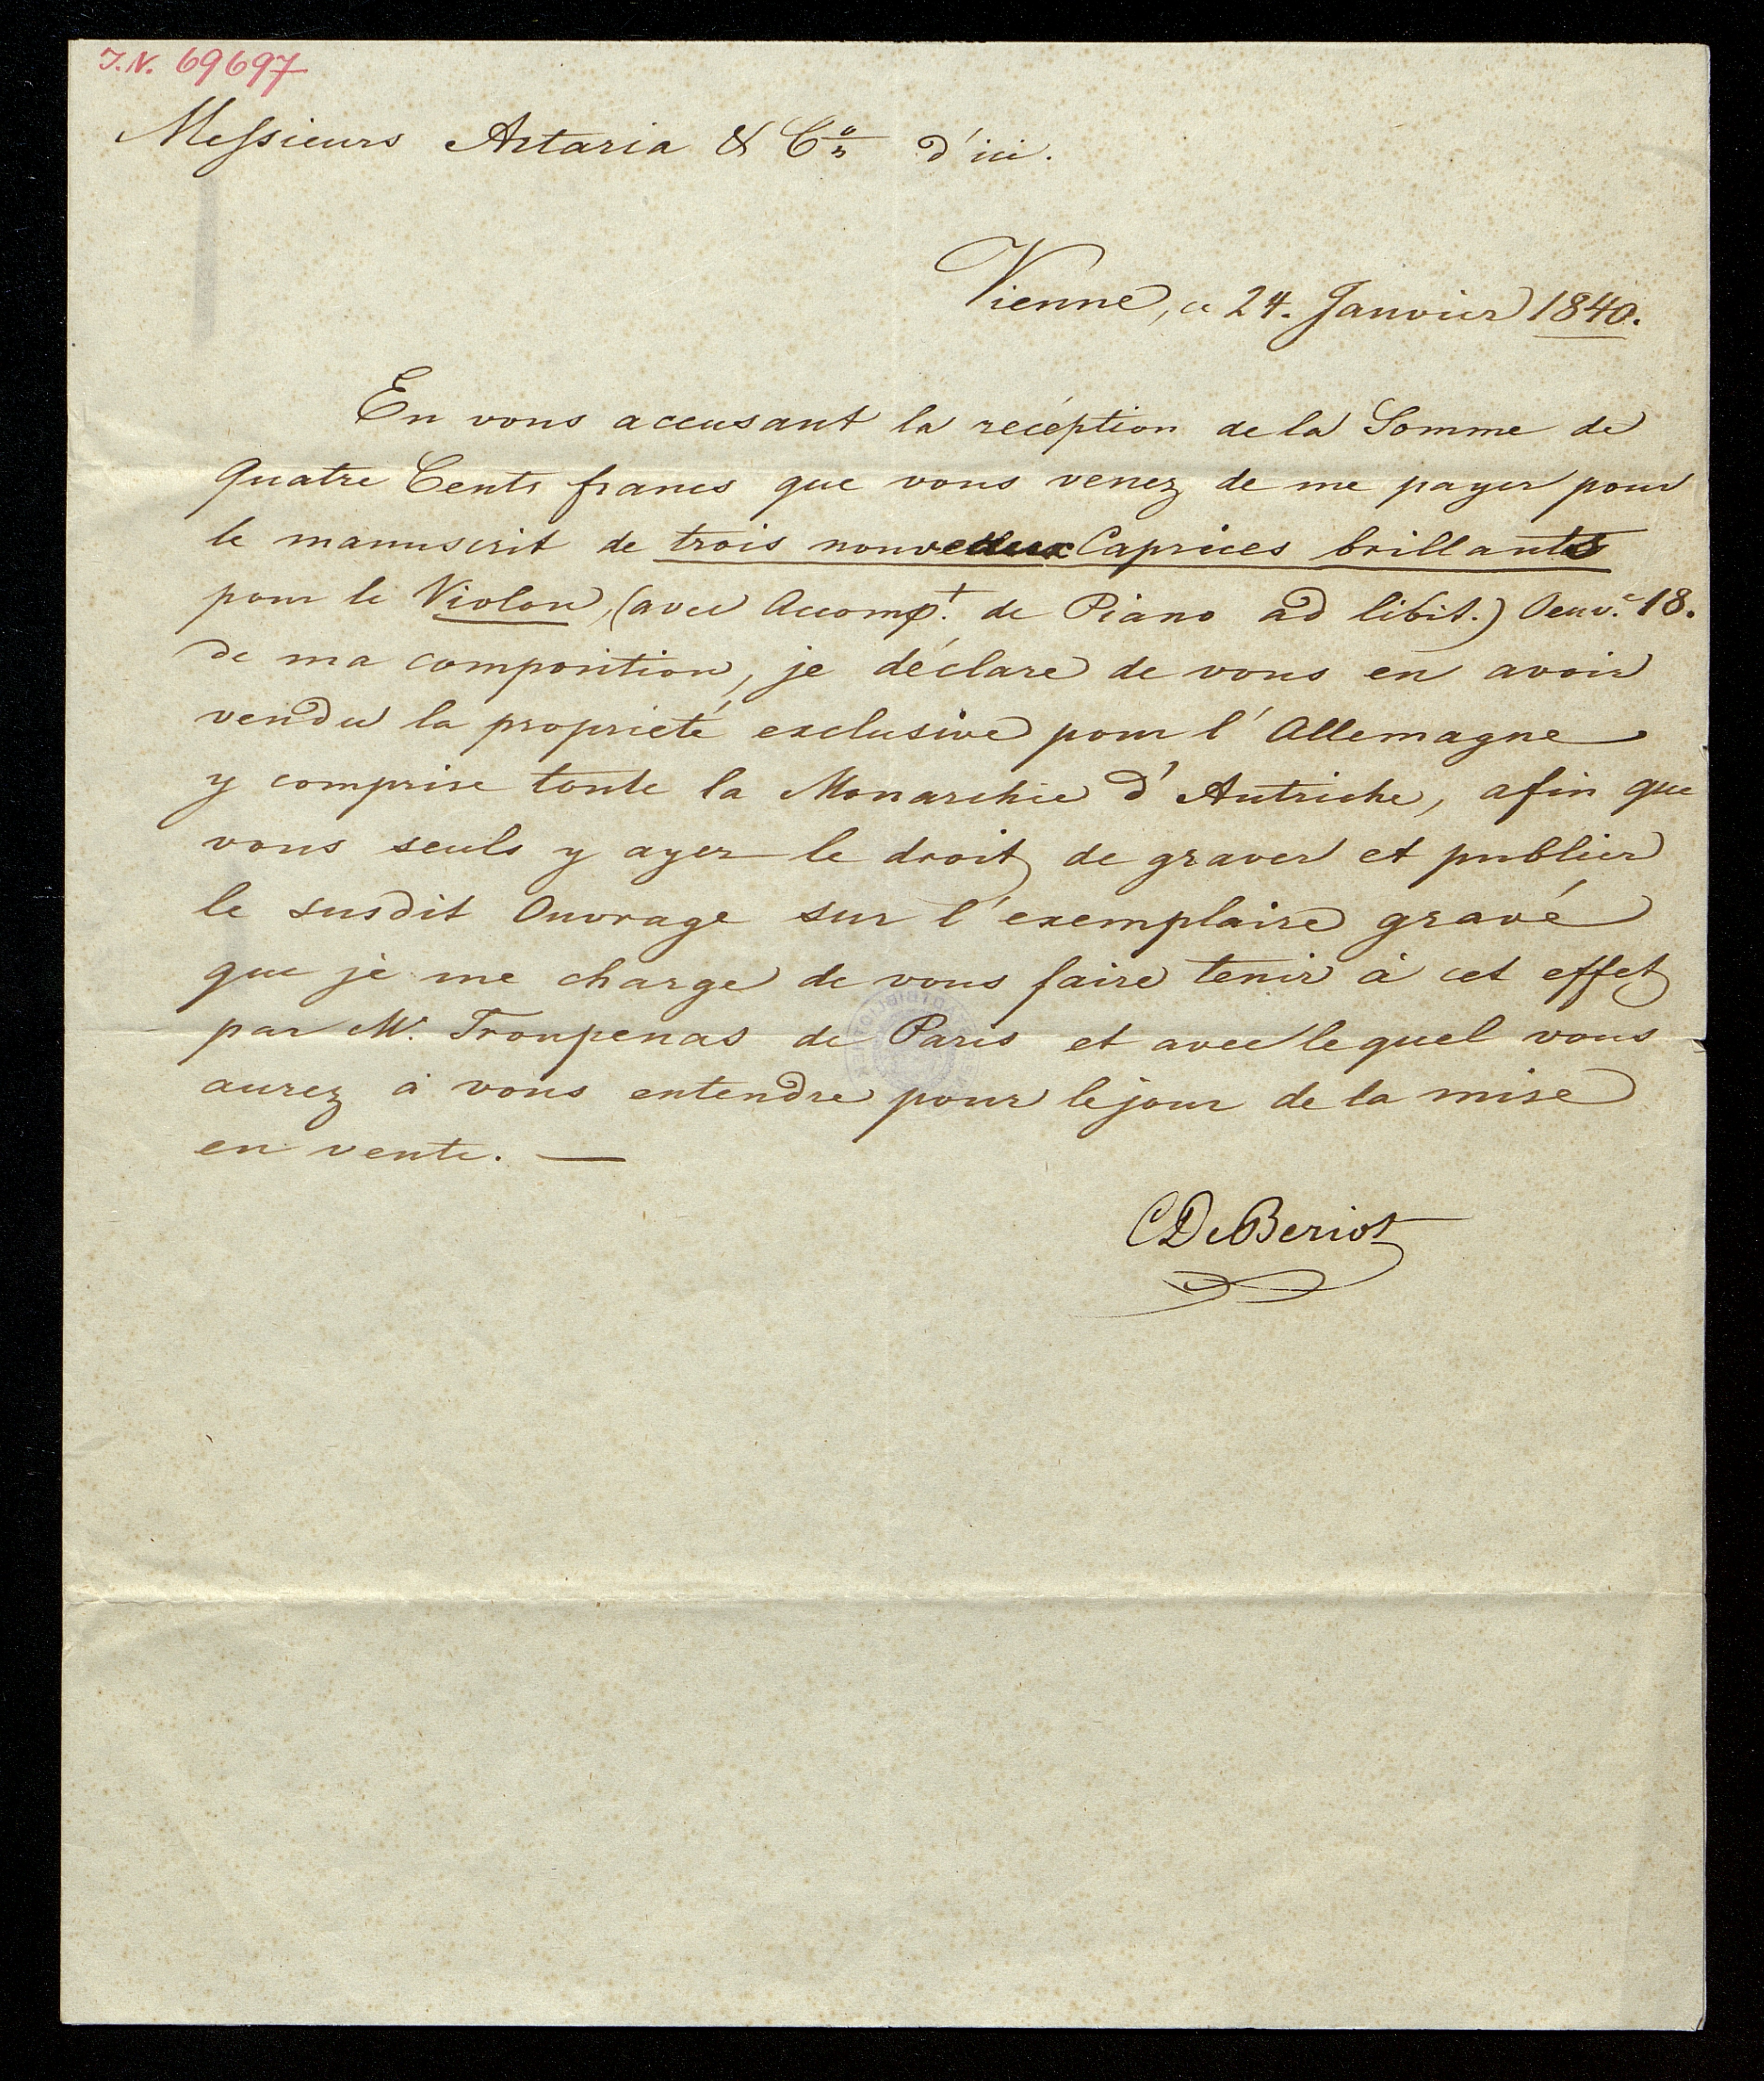 I.N. 69697
Messieurs Artaria & Co d'ici.
Vienne, ce 24. Janvier 1840.
En vous accusant la recéption de la Somme de
Quatre Cents francs que vous venez de me payer pour
le manuscrit de trois nouveaux Caprices brillants
pour le Violon, (avec Accompt. de Piano ad libit.) Oeuv.e 18.
de ma composition, je déclare de vous en avoir
vendu la proprieté exclusive pour l'Allemagne
y comprise toute la Monarchie d'Autriche, afin que
vous seuls y ayez le droit de graver et publier
le susdit Ouvrage sur l'exemplaire gravé
que je me charge de vous faire tenir à cet effet
par Mr. Troupenas de Paris et avec lequel vous
aurez à vous entendre pour le jour de la mise
en vente. —
CDeBeriot